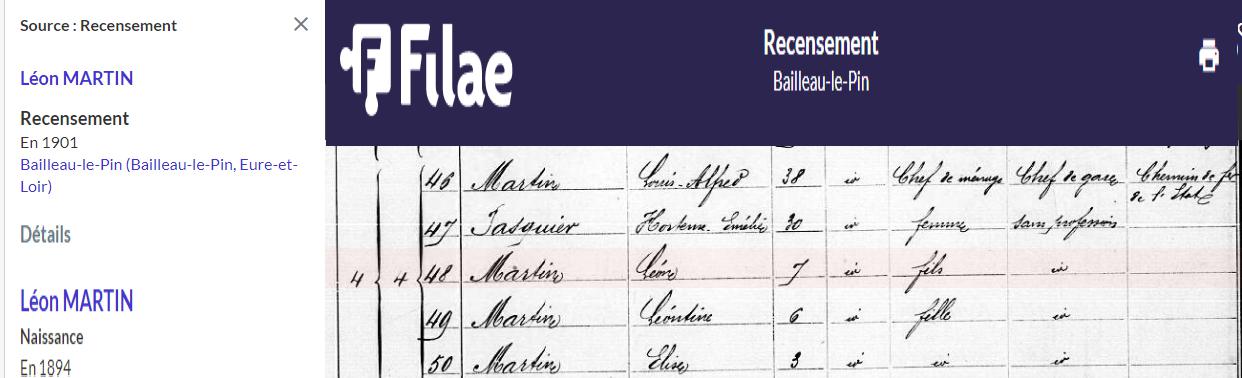 Source : Recensement
Léon MARTIN
Recensement
En 1901
Bailleau-le-Pin (Bailleau-le-Pin, Eure-et-
Loir)
Détails
Léon MARTIN
Naissance
En 1894
Filae
Recensement
Bailleau-le-Pin
46 Martin Louis-Alfred 38 id Chef de ménage Chef de gare Chemin de fer
de l'Etat
47 Pasquier Hortense Emélie 30 id femme sans profession
4 4 48 Martin Léon 7 id fils id
49 Martin Léontine 6 id fille id
50 Martin Elise 3 id id id